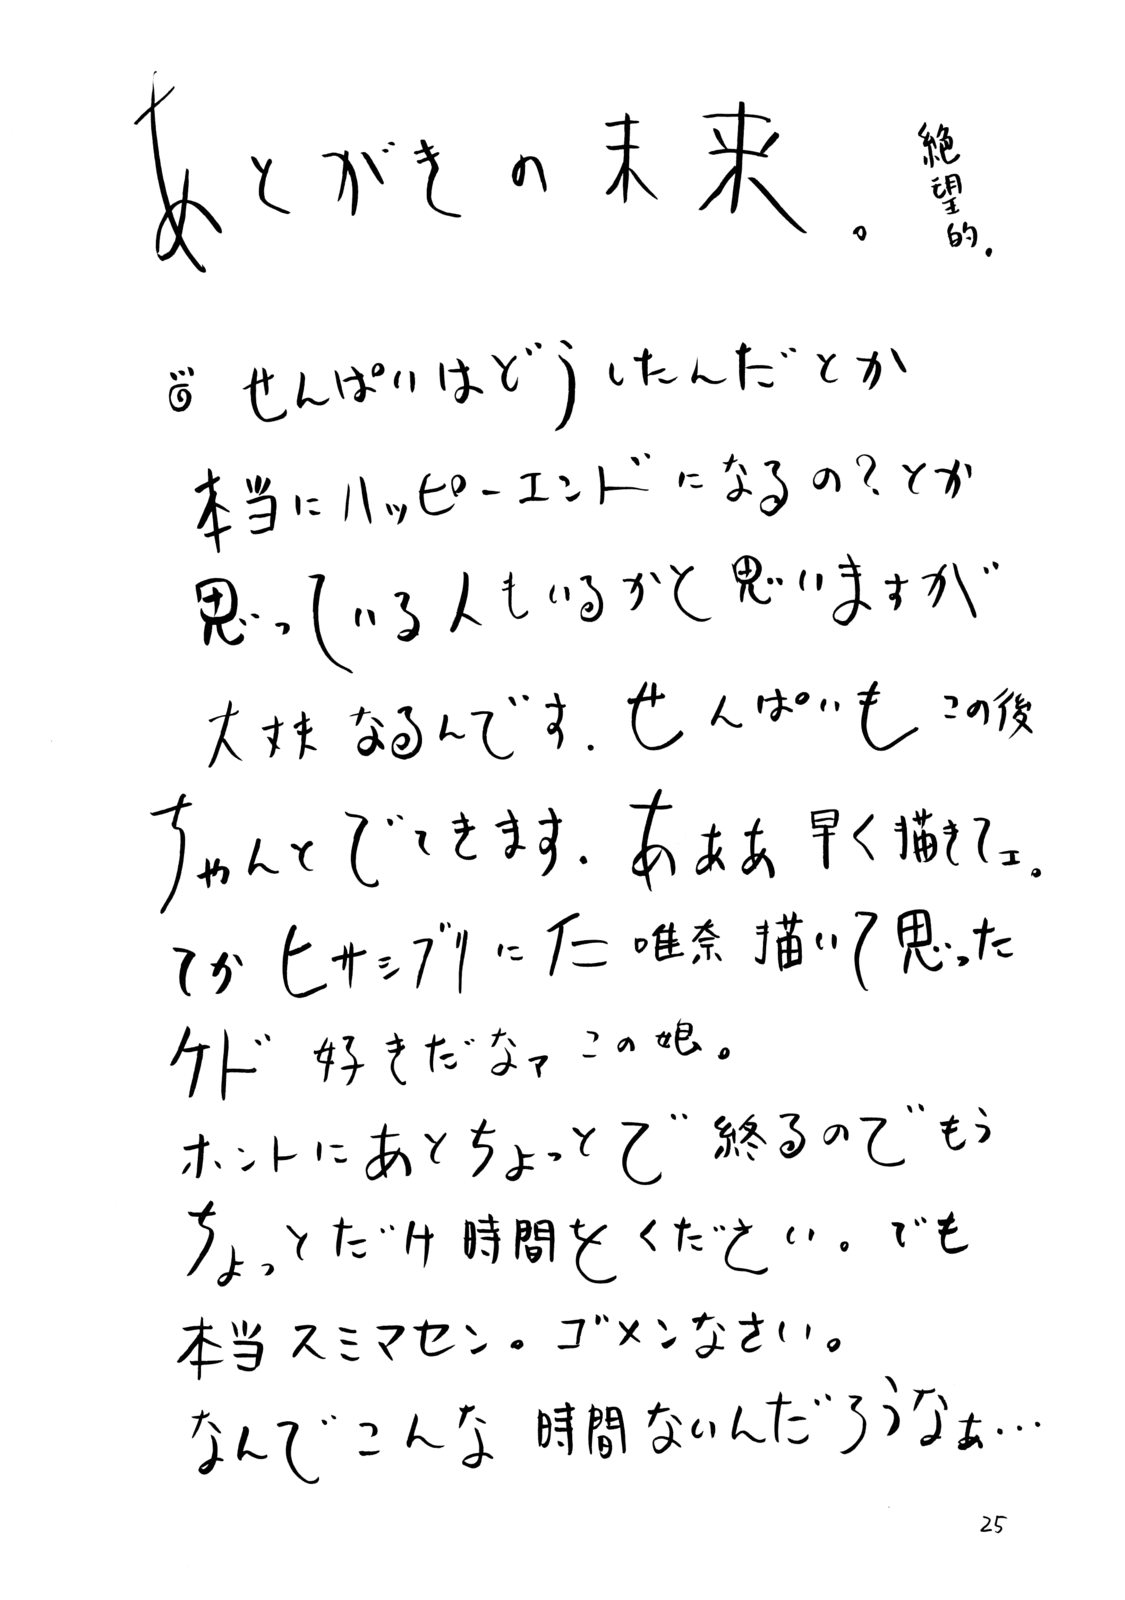 あとがきの未来。
絶望的.
◎゛せんぱいはどうしたんだとか
本当にハッピーエンドになるの?とか
思っている人もいるかと思いますが
大丈夫なるんです.せんぱいもこの後
ちゃんとでてきます.あぁぁ早く描きてェ。
てかヒサシブリに仁唯奈描いて思った
ケド 好きだなァこの娘。
ホントにあとちょっとで終るのでもう
ちょっとだけ時間をください。でも
本当スミマセン。ゴメンなさい。
なんでこんな時間ないんだろうなぁ…
25